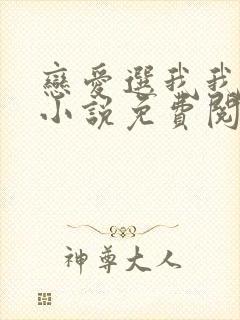 戀愛選我我
小說免費閱
神尊大人